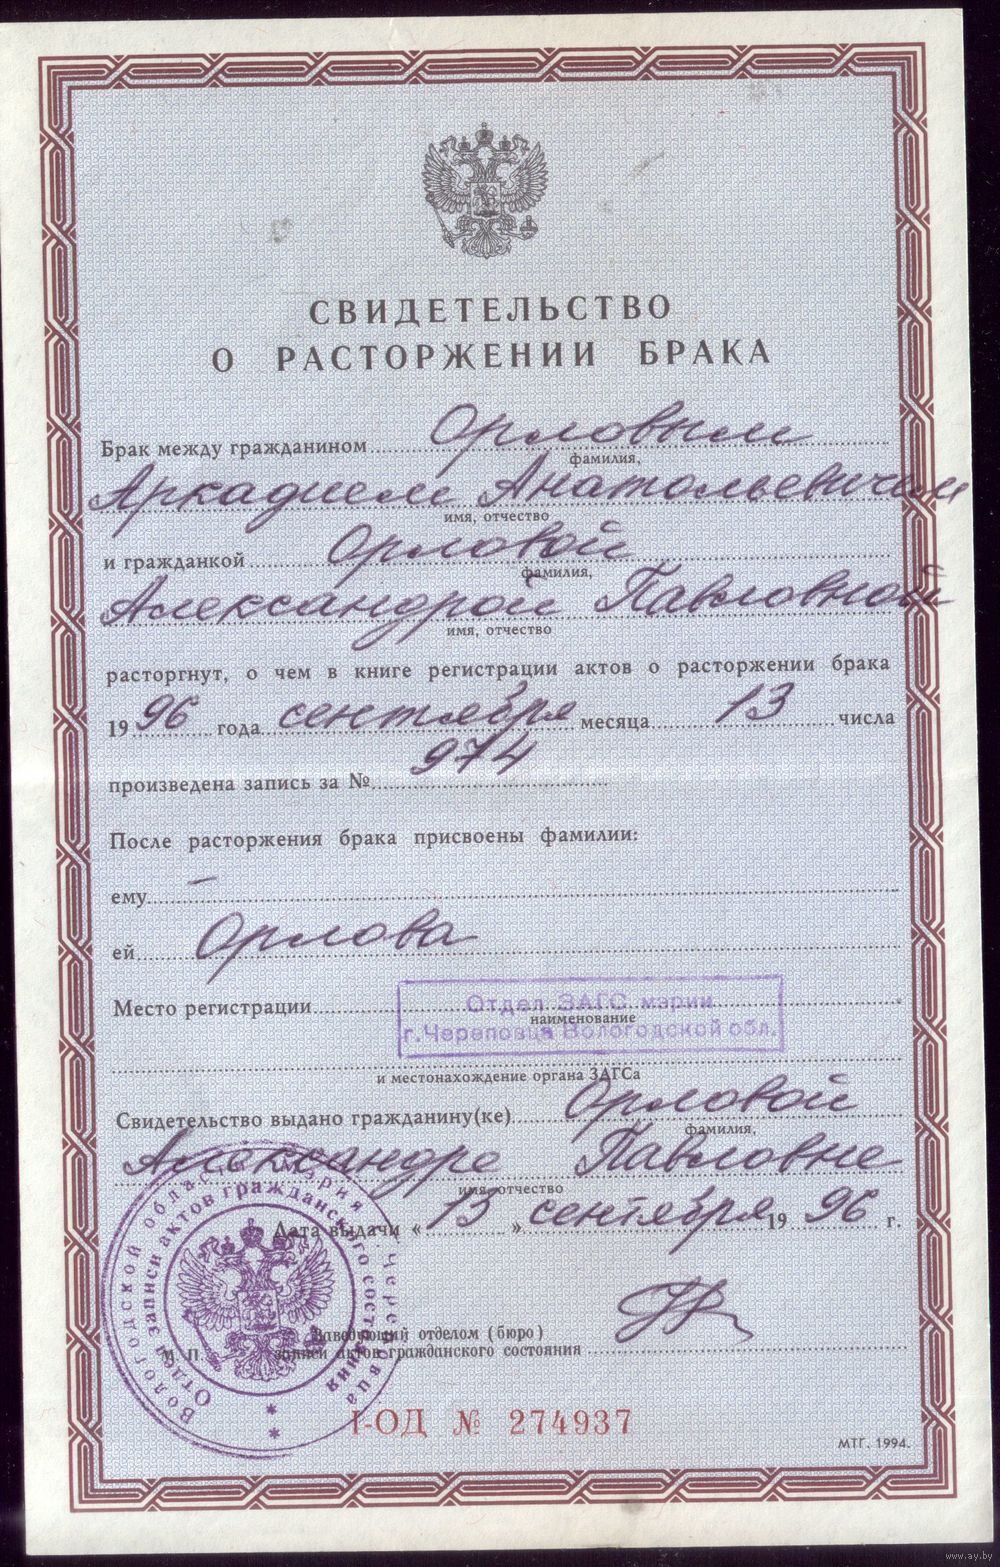 СВИДЕТЕЛЬСТВО
О РАСТОРЖЕНИИ БРАКА
Брак между гражданином Орловым
фамилия,
Аркадием Анатольевичем
имя, отчество
и гражданкой Орловой
фамилия,
Александрой Павловной
имя, отчество
расторгнут, о чем в книге регистрации актов о расторжении брака
19 96 года сентября месяца 13 числа
произведена запись за № 974
После расторжения брака присвоены фамилии:
ему –
ей Орлова
Место регистрации Отдел ЗАГС мэрии
наименование
г.Череповца Вологодской обл.
и местонахождение органа ЗАГСа
Свидетельство выдано гражданину(ке) Орловой
фамилия,
Александре Павловне
имя, отчество
Дата выдачи « 13 » сентября 19 96 г.
Заведующий отделом (бюро)
М. П. записи актов гражданского состояния
Вологодской области мэрия г. Череповца
Отдел записи актов гражданского состояния
* *
I-ОД № 274937
МТГ. 1994.
www.ay.by